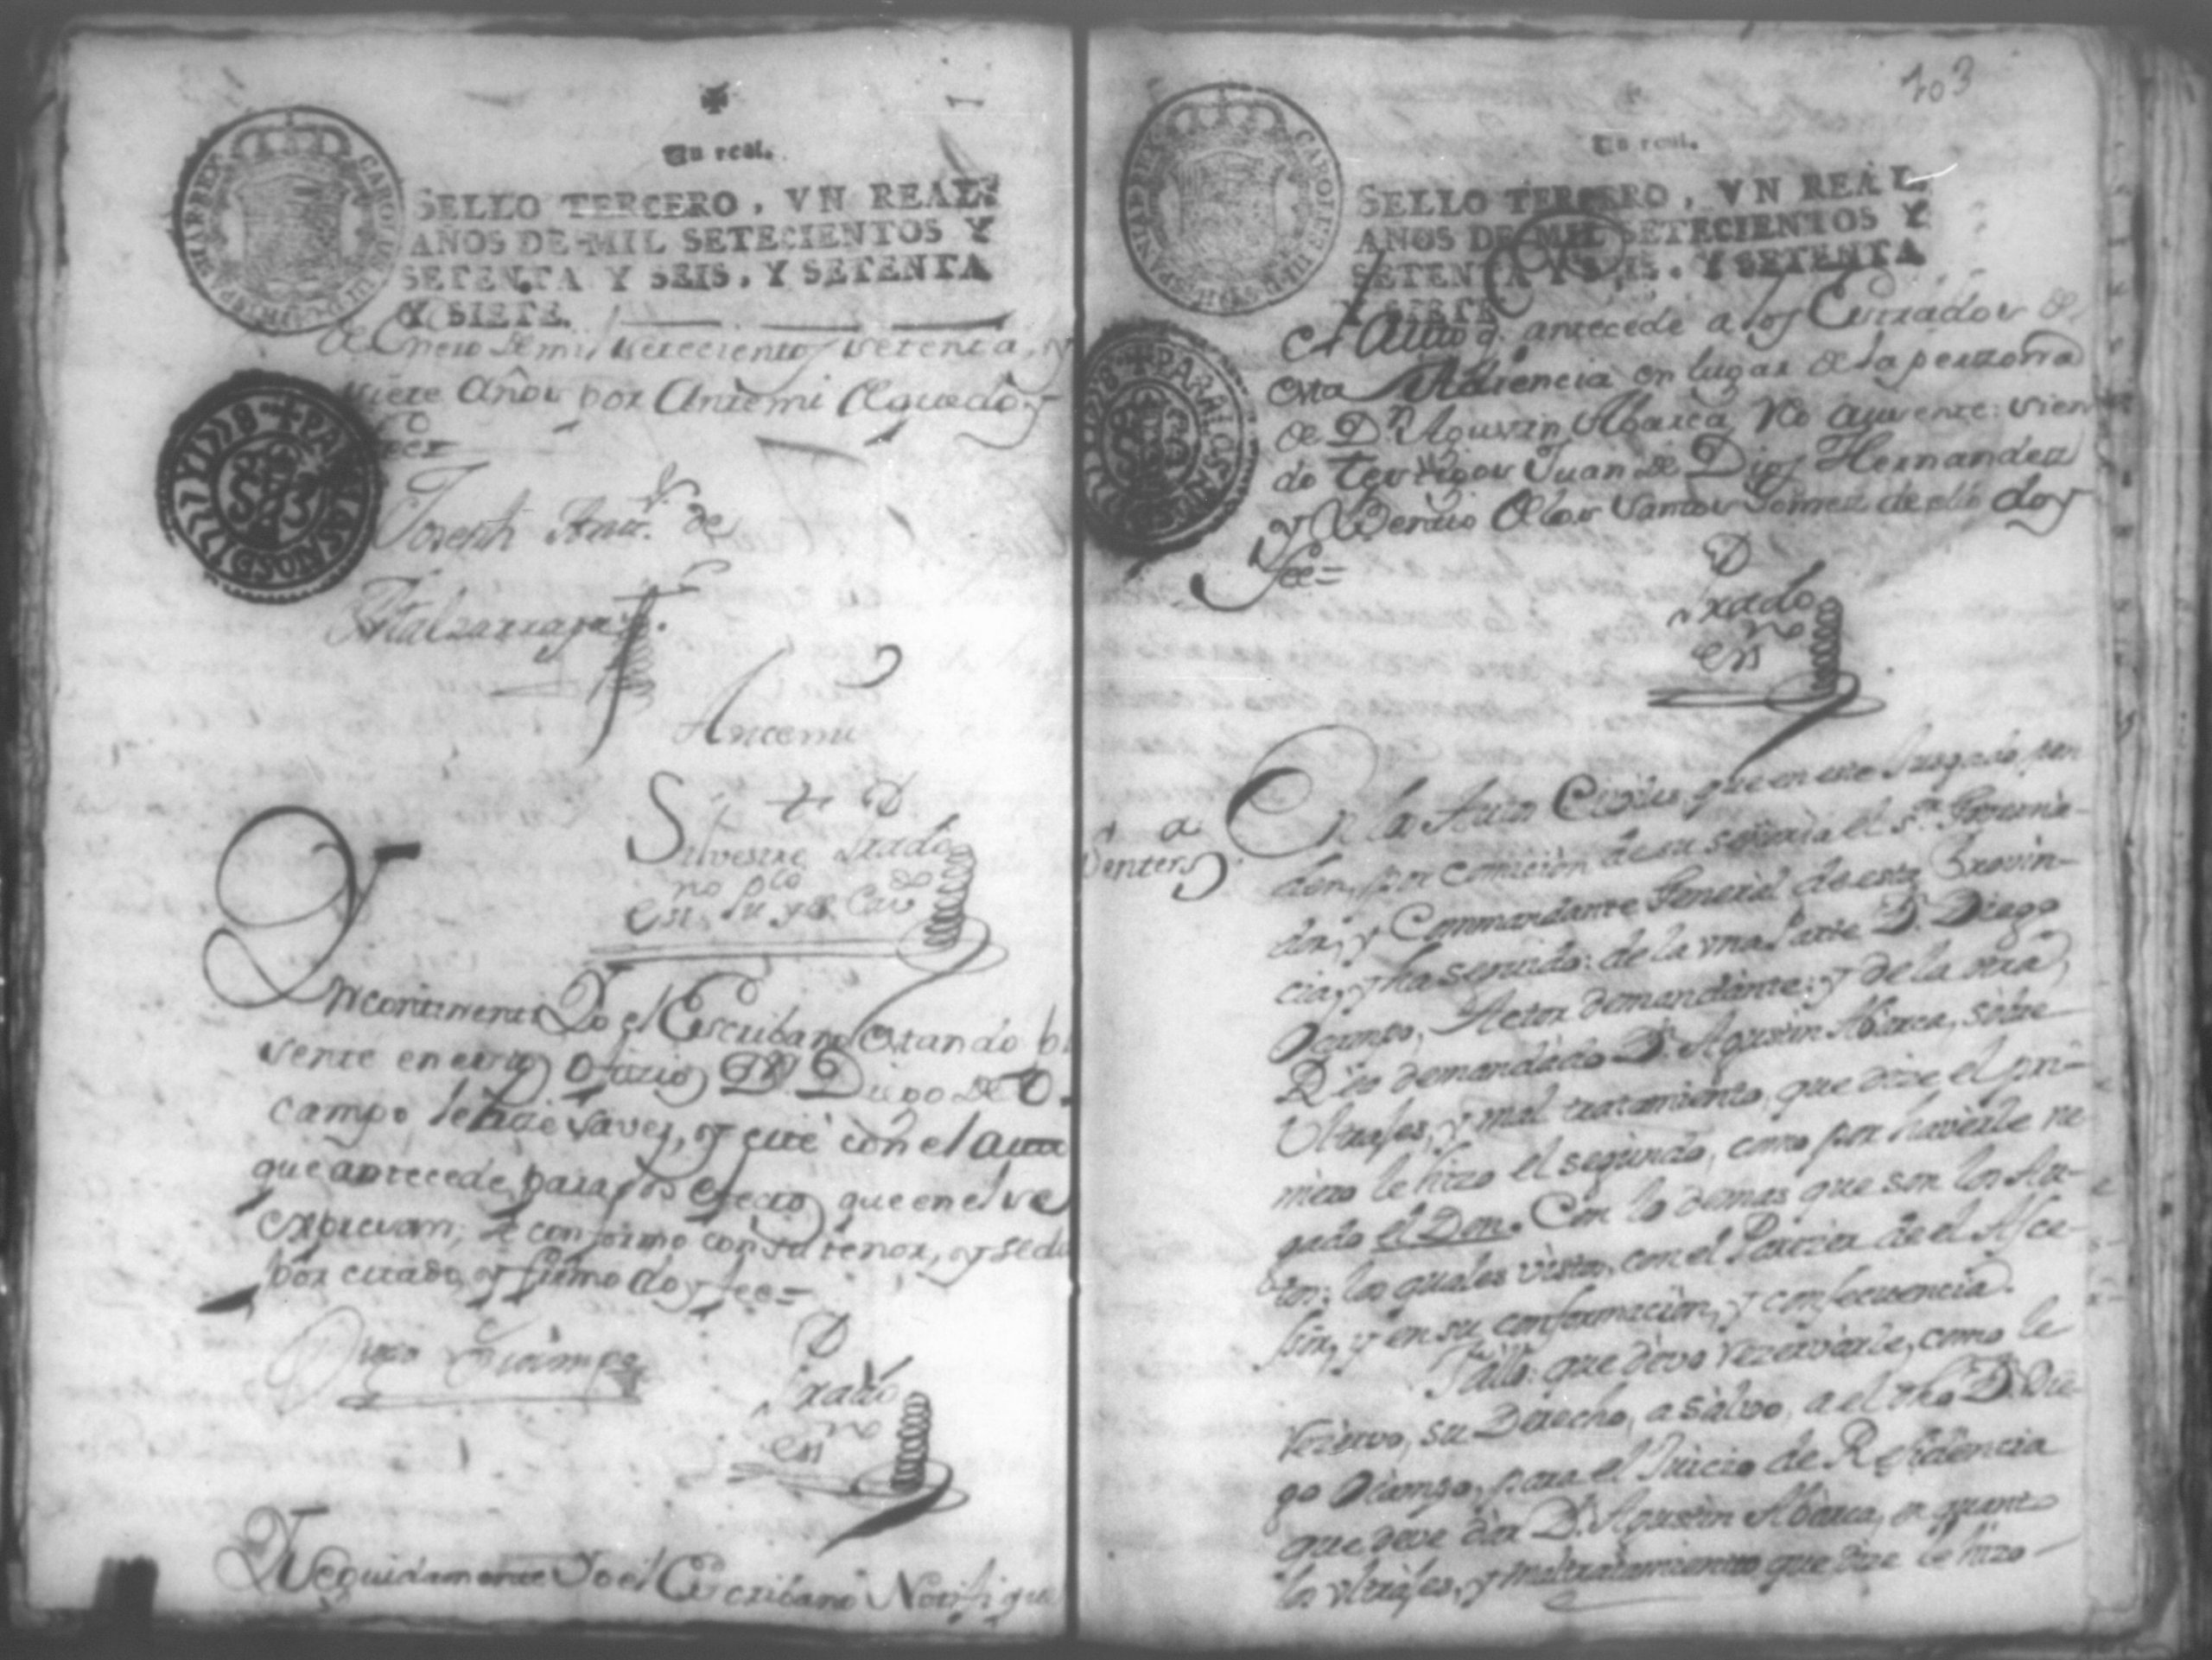 Un real.
SELLO TERCERO, VN REAL
AÑOS DE MIL SETECIENTOS Y
SETENTA Y SEIS, Y SETENTA
Y SIETE.
CAROLUS III D G HISPANIAR REX
de Enero de mil setecientos setenta, y
siete Años por Antemi de que doy
fee
PARA LOS AÑOS D 1777 Y 1778
Joseph Antº. de
Antemi
Silvestre Prado
esnº pco
Yncontinenti Yo el Escribano estando pre
sente en este oficio Dn. Diego de O
campo le hize saver, y cité con el auto
que antecede para los efectos que en el se
expresan, se conformó con su tenor, y se dio
por citado, y firmó doy fee=
Diego Ocampo
Prado
esnº
Seguidamente Yo el Escribano Notifique
203
Un real.
SELLO TERCERO, VN REAL
AÑOS DE MIL SETECIENTOS Y
SETENTA Y SEIS, Y SETENTA
Y SIETE
CAROLUS III D G HISPANIAR REX
el Auto q. antecede a los Estrados de
esta Audiencia en lugar de la persona
de Dn. Agustin Abarca Reo ausente: sien
do testigos Juan de Dios Hernandez
PARA LOS AÑOS D 1777 Y 1778
y Benito de los Santos Gomez de ello doy
fee=
Prado
esnº
En los Autos Civiles que en este Jusgado pen
den, por comicion de su señoria el Sr. Governa-
dor, y Commandante General de esta Provin-
cia, y ha seguido: de la vna Parte Dn. Diego
Ocampo, Actor demandante: y de la otra
Reo demandado Dn. Agustin Abarca, sobre
Vltrajes, y mal tratamiento, que dize el pri-
mero le hizo el segundo, como por haverle ne
gado el Don. Con lo demas que son los Au-
tos; los quales vistos, con el Parecer de el Asce-
sor, y en su conformacion, y consecuencia.
Fallo: que devo rezervarle, como le
rezervo, su Derecho, a salvo, a el dho Dn. Die-
go Ocampo, para el Juicio de Residencia
que deve dar Dn. Agustin Abarca, en quanto
los vltrajes, y maltratamientos que dize le hizo